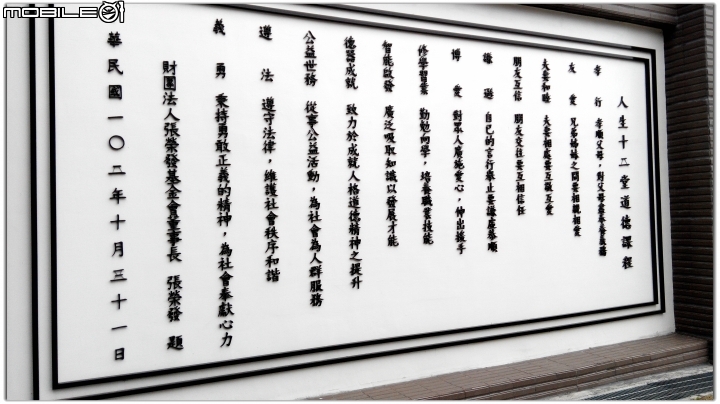 MOBILE01
人生十二堂道德課程
孝行 孝順父母，對父母盡孝養義務
友愛 兄弟姊妹之間要相親相愛
夫妻和睦 夫妻相處要互敬互愛
朋友互信 朋友交往要互相信任
謙遜 自己的言行舉止要謙虛恭順
博愛 對眾人廣施愛心，伸出援手
修學習業 勤勉向學，培養職業技能
智能啟發 廣泛吸取知識以發展才能
德器成就 致力於成就人格道德精神之提升
公益世務 從事公益活動，為社會為人群服務
遵法 遵守法律，維護社會秩序和諧
義勇 秉持勇敢正義的精神，為社會奉獻心力
財團法人張榮發基金會董事長 張榮發 題
華民國一〇二年十月三十一日